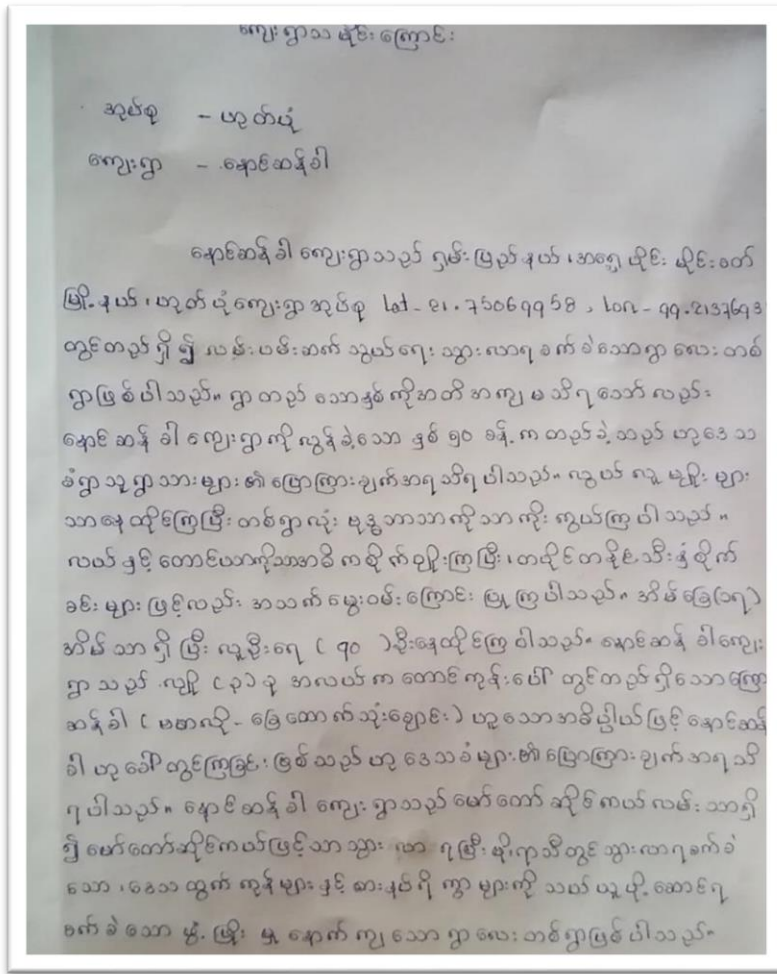 ကျေးရွာသမိုင်းကြောင်း
အုပ်စု - ဟုတ်ပုံ
ကျေးရွာ - နောင်ဆန်ခါ
နောင်ဆန်ခါ ကျေးရွာသည် ရှမ်းပြည်နယ်၊ အရှေ့ပိုင်း မိုင်းခတ်
မြို့နယ်၊ ဟုတ်ပုံကျေးရွာအုပ်စု Lat - 21.75069958, Lon - 99.2137693
တွင်တည်ရှိ၍ လမ်းပမ်းဆက်သွယ်ရေး သွားလာရခက်ခဲသောရွာလေးတစ်
ရွာဖြစ်ပါသည်။ ရွာတည်သောနှစ်ကိုအတိအကျမသိရသော်လည်း
နောင်ဆန်ခါကျေးရွာကိုလွန်ခဲ့သော နှစ် ၅၀ ခန့်ကတည်ခဲ့သည် ဟုဒေသ
ခံရွာသူရွာသားများ၏ပြောကြားချက်အရသိရပါသည်။ လွယ်လူမျိုးများ
သာနေထိုင်ကြပြီးတစ်ရွာလုံး ဗုဒ္ဓဘာသာကိုသာကိုးကွယ်ကြပါသည်။
လယ်နှင့်တောင်ယာကိုသာအဓိကစိုက်ပျိုးကြပြီး၊ တပိုင်တနိုင်သီးနှံစိုက်
ခင်းများဖြင့်လည်း အသက်မွေးဝမ်းကြောင်း ပြုကြပါသည်။ အိမ်ခြေ(၁၅)
အိမ်သာရှိပြီး လူဦးရေ (၇၀)ဦးနေထိုင်ကြပါသည်။ နောင်ဆန်ခါကျေး
ရွာသည် လျှို(၃)ခု အလယ်ကတောင်ကုန်းပေါ်တွင်တည်ရှိသောကြောင့်
ဆန်ခါ (ဗမာလို- ခြေထောက်သုံးချောင်း) ဟူသောအဓိပ္ပါယ်ဖြင့်နောင်ဆန်
ခါဟုခေါ်တွင်ကြခြင်းဖြစ်သည်ဟု ဒေသခံများ၏ပြောကြားချက်အရသိ
ရပါသည်။ နောင်ဆန်ခါကျေးရွာသည်မော်တော်ဆိုင်ကယ်လမ်းသာရှိ
၍ မော်တော်ဆိုင်ကယ်ဖြင့်သာသွားလာရပြီး မိုးရာသီတွင်သွားလာရခက်ခဲ
သော၊ ဒေသထွက်ကုန်များနှင့်စားနပ်ရိက္ခာများကိုသယ်ယူပို့ဆောင်ရ
ခက်ခဲသော ဖွံ့ဖြိုးမှုနောက်ကျသောရွာလေးတစ်ရွာဖြစ်ပါသည်။